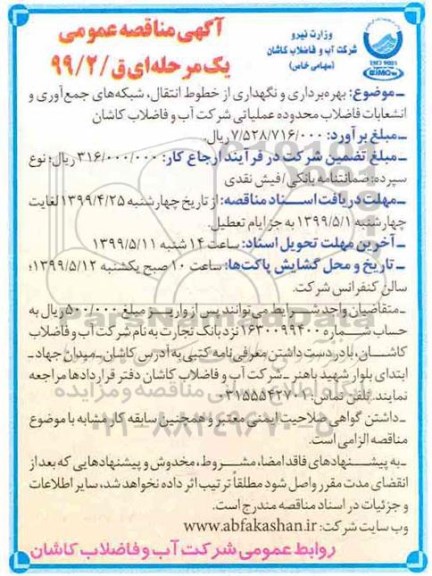 وزارت نیرو
شرکت آب و فاضلاب کاشان
(سهامی خاص)
آگهی مناقصه عمومی
یک مرحله‌ای ق/۹۹/۲
ـ موضوع: بهره‌برداری و نگهداری از خطوط انتقال، شبکه‌های جمع‌آوری و
انشعابات فاضلاب محدوده عملیاتی شرکت آب و فاضلاب کاشان
ـ مبلغ برآورد: ۷/۵۲۸/۷۱۶/۰۰۰ ریال.
ـ مبلغ تضمین شرکت در فرآیند ارجاع کار: ۳۱۶/۰۰۰/۰۰۰ ریال؛ نوع
سپرده: ضمانتنامه بانکی / فیش نقدی
ـ مهلت دریافت اسناد مناقصه: از تاریخ چهارشنبه ۱۳۹۹/۴/۲۵ لغایت
چهارشنبه ۱۳۹۹/۵/۱ به جز ایام تعطیل.
ـ آخرین مهلت تحویل اسناد: ساعت ۱۴ شنبه ۱۳۹۹/۵/۱۱
ـ تاریخ و محل گشایش پاکت‌ها: ساعت ۱۰ صبح یکشنبه ۱۳۹۹/۵/۱۲؛
سالن کنفرانس شرکت.
ـ متقاضیان واجد شرایط می‌توانند پس از واریز مبلغ ۵۰۰/۰۰۰ ریال به
حساب شماره ۱۶۳۰۰۹۹۴۰۰ نزد بانک تجارت به نام شرکت آب و فاضلاب
کاشان، با در دست داشتن معرفی‌نامه کتبی به آدرس کاشان ـ میدان جهاد ـ
ابتدای بلوار شهید باهنر ـ شرکت آب و فاضلاب کاشان دفتر قراردادها مراجعه
نمایند. تلفن تماس: ۰۳۱۵۵۵۴۲۷۰۱
ـ داشتن گواهی صلاحیت ایمنی معتبر و همچنین سابقه کار مشابه با موضوع
مناقصه الزامی است.
ـ به پیشنهادهای فاقد امضا، مشروط، مخدوش و پیشنهادهایی که بعد از
انقضای مدت مقرر واصل شود مطلقاً ترتیب اثر داده نخواهد شد، سایر اطلاعات
و جزئیات در اسناد مناقصه مندرج است.
وب سایت شرکت: www.abfakashan.ir
روابط عمومی شرکت آب و فاضلاب کاشان
۰۲۱-۸۸۳۴۹۶۷۰-۵